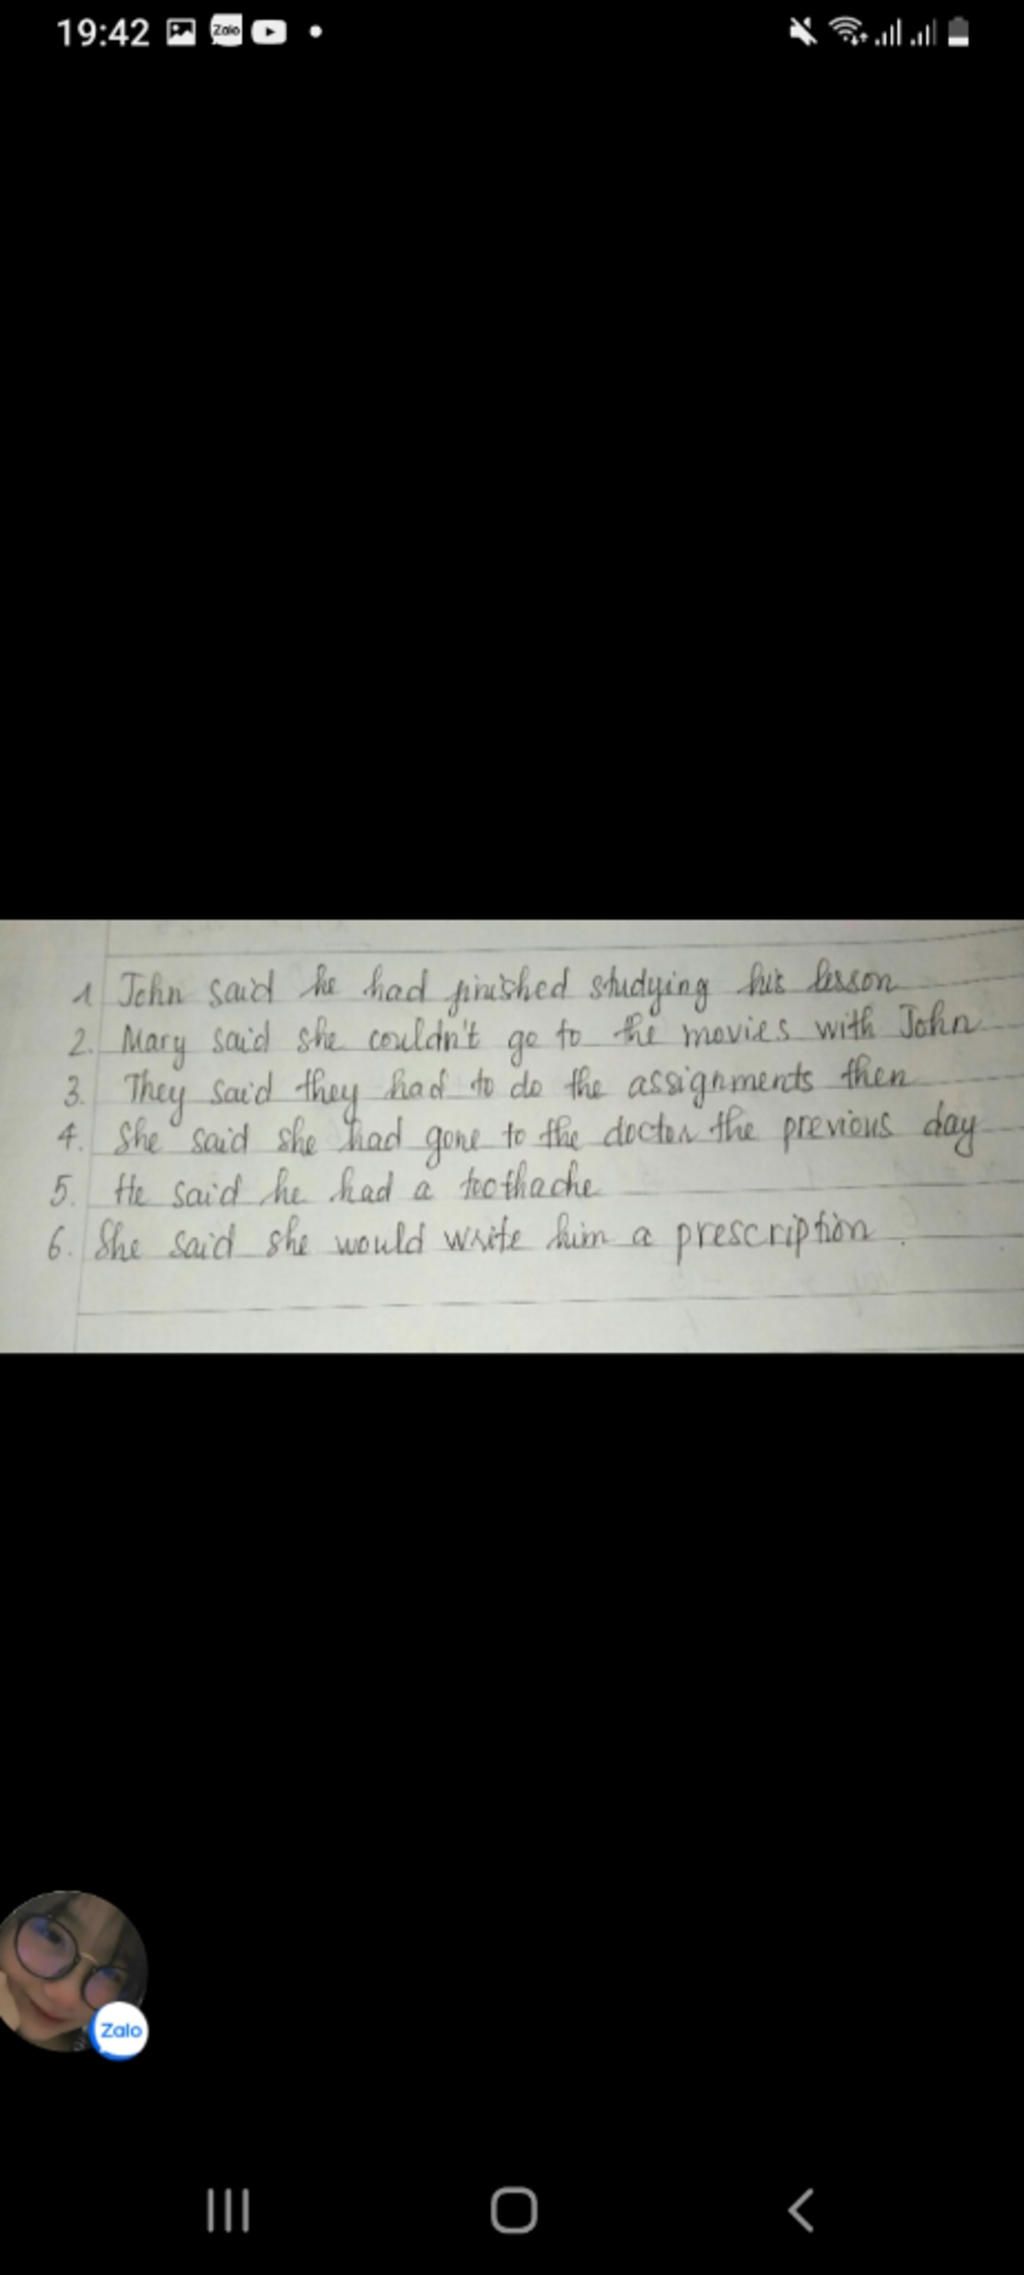 19:42 Zalo
1 John said he had finished studying his lesson
2. Mary said she couldn't go to the movies with John
3. They said they had to do the assignments then
4. She said she had gone to the doctor the previous day
5. He said he had a toothache
6. She said she would write him a prescription.
Zalo